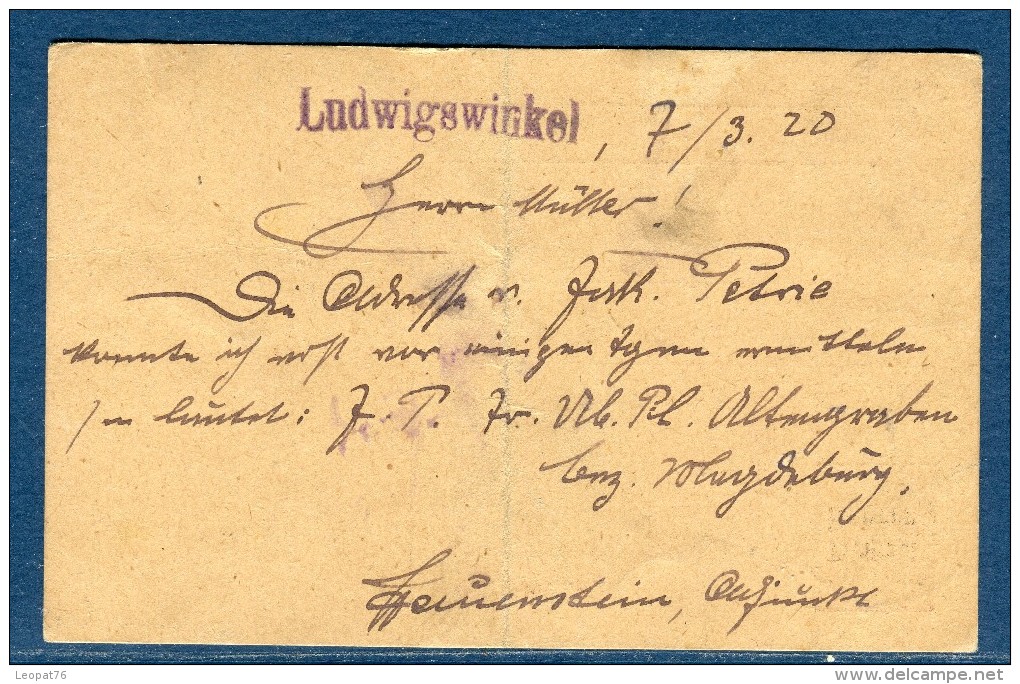 Ludwigswinkel, 7/3. 20
Herrn Müller!
Die Adresse v. Jak. Petrie
konnte ich erst vor einigen Tgen ermitteln
sie lautet: J. P. Tr. Üb. Pl. Altengraben
bez. Magdeburg.
Hauenstein, Adjunkt
Leopat76
delcampe.net